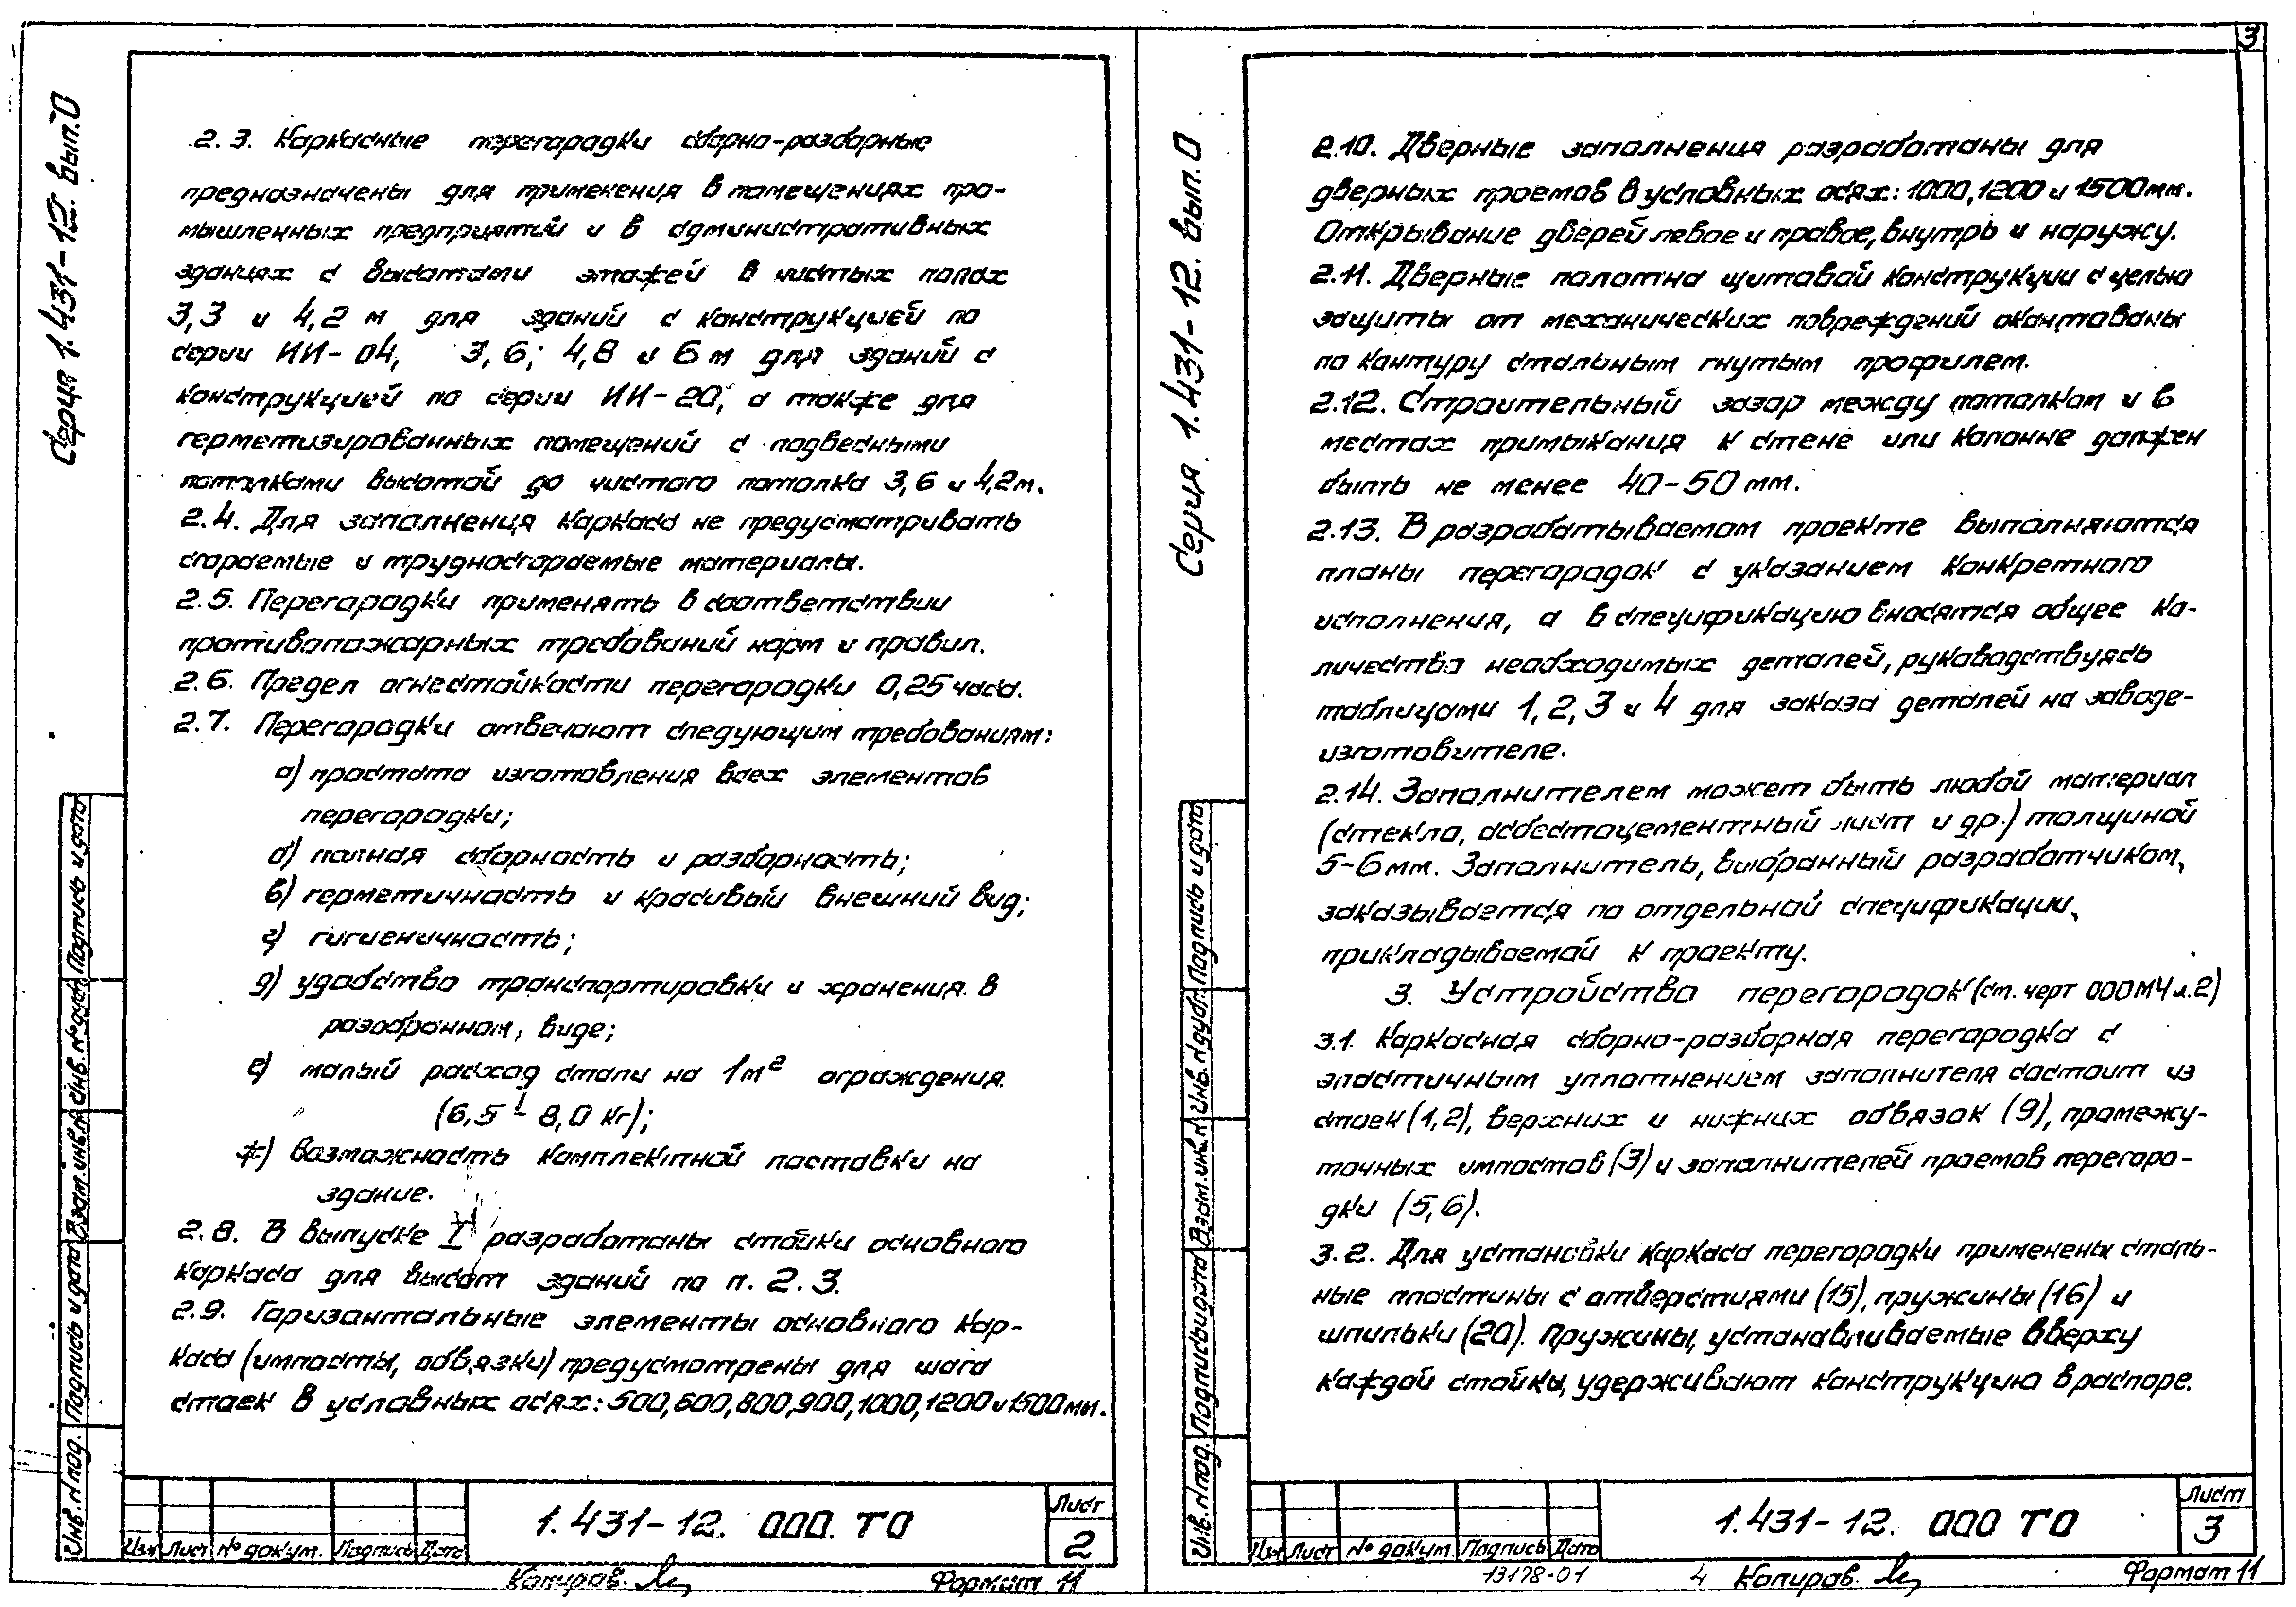 3
Серия 1.431-12. вып.0
2.3. Каркасные перегородки сборно-разборные
предназначены для применения в помещениях про-
мышленных предприятий и в административных
зданиях с высотами этажей в чистых полах
3,3 и 4,2 м для зданий с конструкцией по
серии ИИ-04, 3,6; 4,8 и 6 м для зданий с
конструкцией по серии ИИ-20, а также для
герметизированных помещений с подвесными
потолками высотой до чистого потолка 3,6 и 4,2 м.
2.4. Для заполнения каркаса не предусматривать
сгораемые и трудносгораемые материалы.
2.5. Перегородки применять в соответствии
противопожарных требований норм и правил.
2.6. Предел огнестойкости перегородки 0,25 часа.
2.7. Перегородки отвечают следующим требованиям:
а) простота изготовления всех элементов
перегородки;
б) полная сборность и разборность;
в) герметичность и красивый внешний вид;
г) гигиеничность;
д) удобство транспортировки и хранения в
разобранном, виде;
е) малый расход стали на 1м² ограждения
(6,5 ÷ 8,0 кг);
ж) возможность комплектной поставки на
здание.
2.8. В выпуске I разработаны стойки основного
каркаса для высот зданий по п. 2.3.
2.9. Горизонтальные элементы основного кар-
каса (импосты, обвязки) предусмотрены для шага
стоек в условных осях: 500,600,800,900,1000,1200 и 1500 мм.
Инв. N под. Подпись и дата Взам. инв. N Инв. N дубл. Подпись и дата
Изм Лист № докум. Подпись Дата
1.431-12. 000. ТО
Лист
2
Копиров.
Формат 11
Серия 1.431-12. вып.0
2.10. Дверные заполнения разработаны для
дверных проемов в условных осях: 1000, 1200 и 1500 мм.
Открывание дверей левое и правое, внутрь и наружу.
2.11. Дверные полотна щитовой конструкции с целью
защиты от механических повреждений окантованы
по контуру стальным гнутым профилем.
2.12. Строительный зазор между потолком и в
местах примыкания к стене или колонне должен
быть не менее 40-50 мм.
2.13. В разрабатываемом проекте выполняются
планы перегородок с указанием конкретного
исполнения, а в спецификацию вносятся общее ко-
личество необходимых деталей, руководствуясь
таблицами 1, 2, 3 и 4 для заказа деталей на заводе-
изготовителе.
2.14. Заполнителем может быть любой материал
(стекло, асбестоцементный лист и др.) толщиной
5-6 мм. Заполнитель, выбранный разработчиком,
заказывается по отдельной спецификации,
прикладываемой к проекту.
3. Устройство перегородок (см. черт 000МЧ л.2)
3.1. Каркасная сборно-разборная перегородка с
эластичным уплотнением заполнителя состоит из
стоек (1,2), верхних и нижних обвязок (9), промежу-
точных импостов (3) и заполнителей проемов перегоро-
дки (5,6).
3.2. Для установки каркаса перегородки применены сталь-
ные пластины с отверстиями (15), пружины (16) и
шпильки (20). Пружины, устанавливаемые вверху
каждой стойки, удерживают конструкцию в распоре.
Инв. N под. Подпись и дата Взам. инв. N Инв. N дубл. Подпись и дата
Изм Лист № докум. Подпись Дата
1.431-12. 000 ТО
Лист
3
13178-01 4 Копиров.
Формат 11